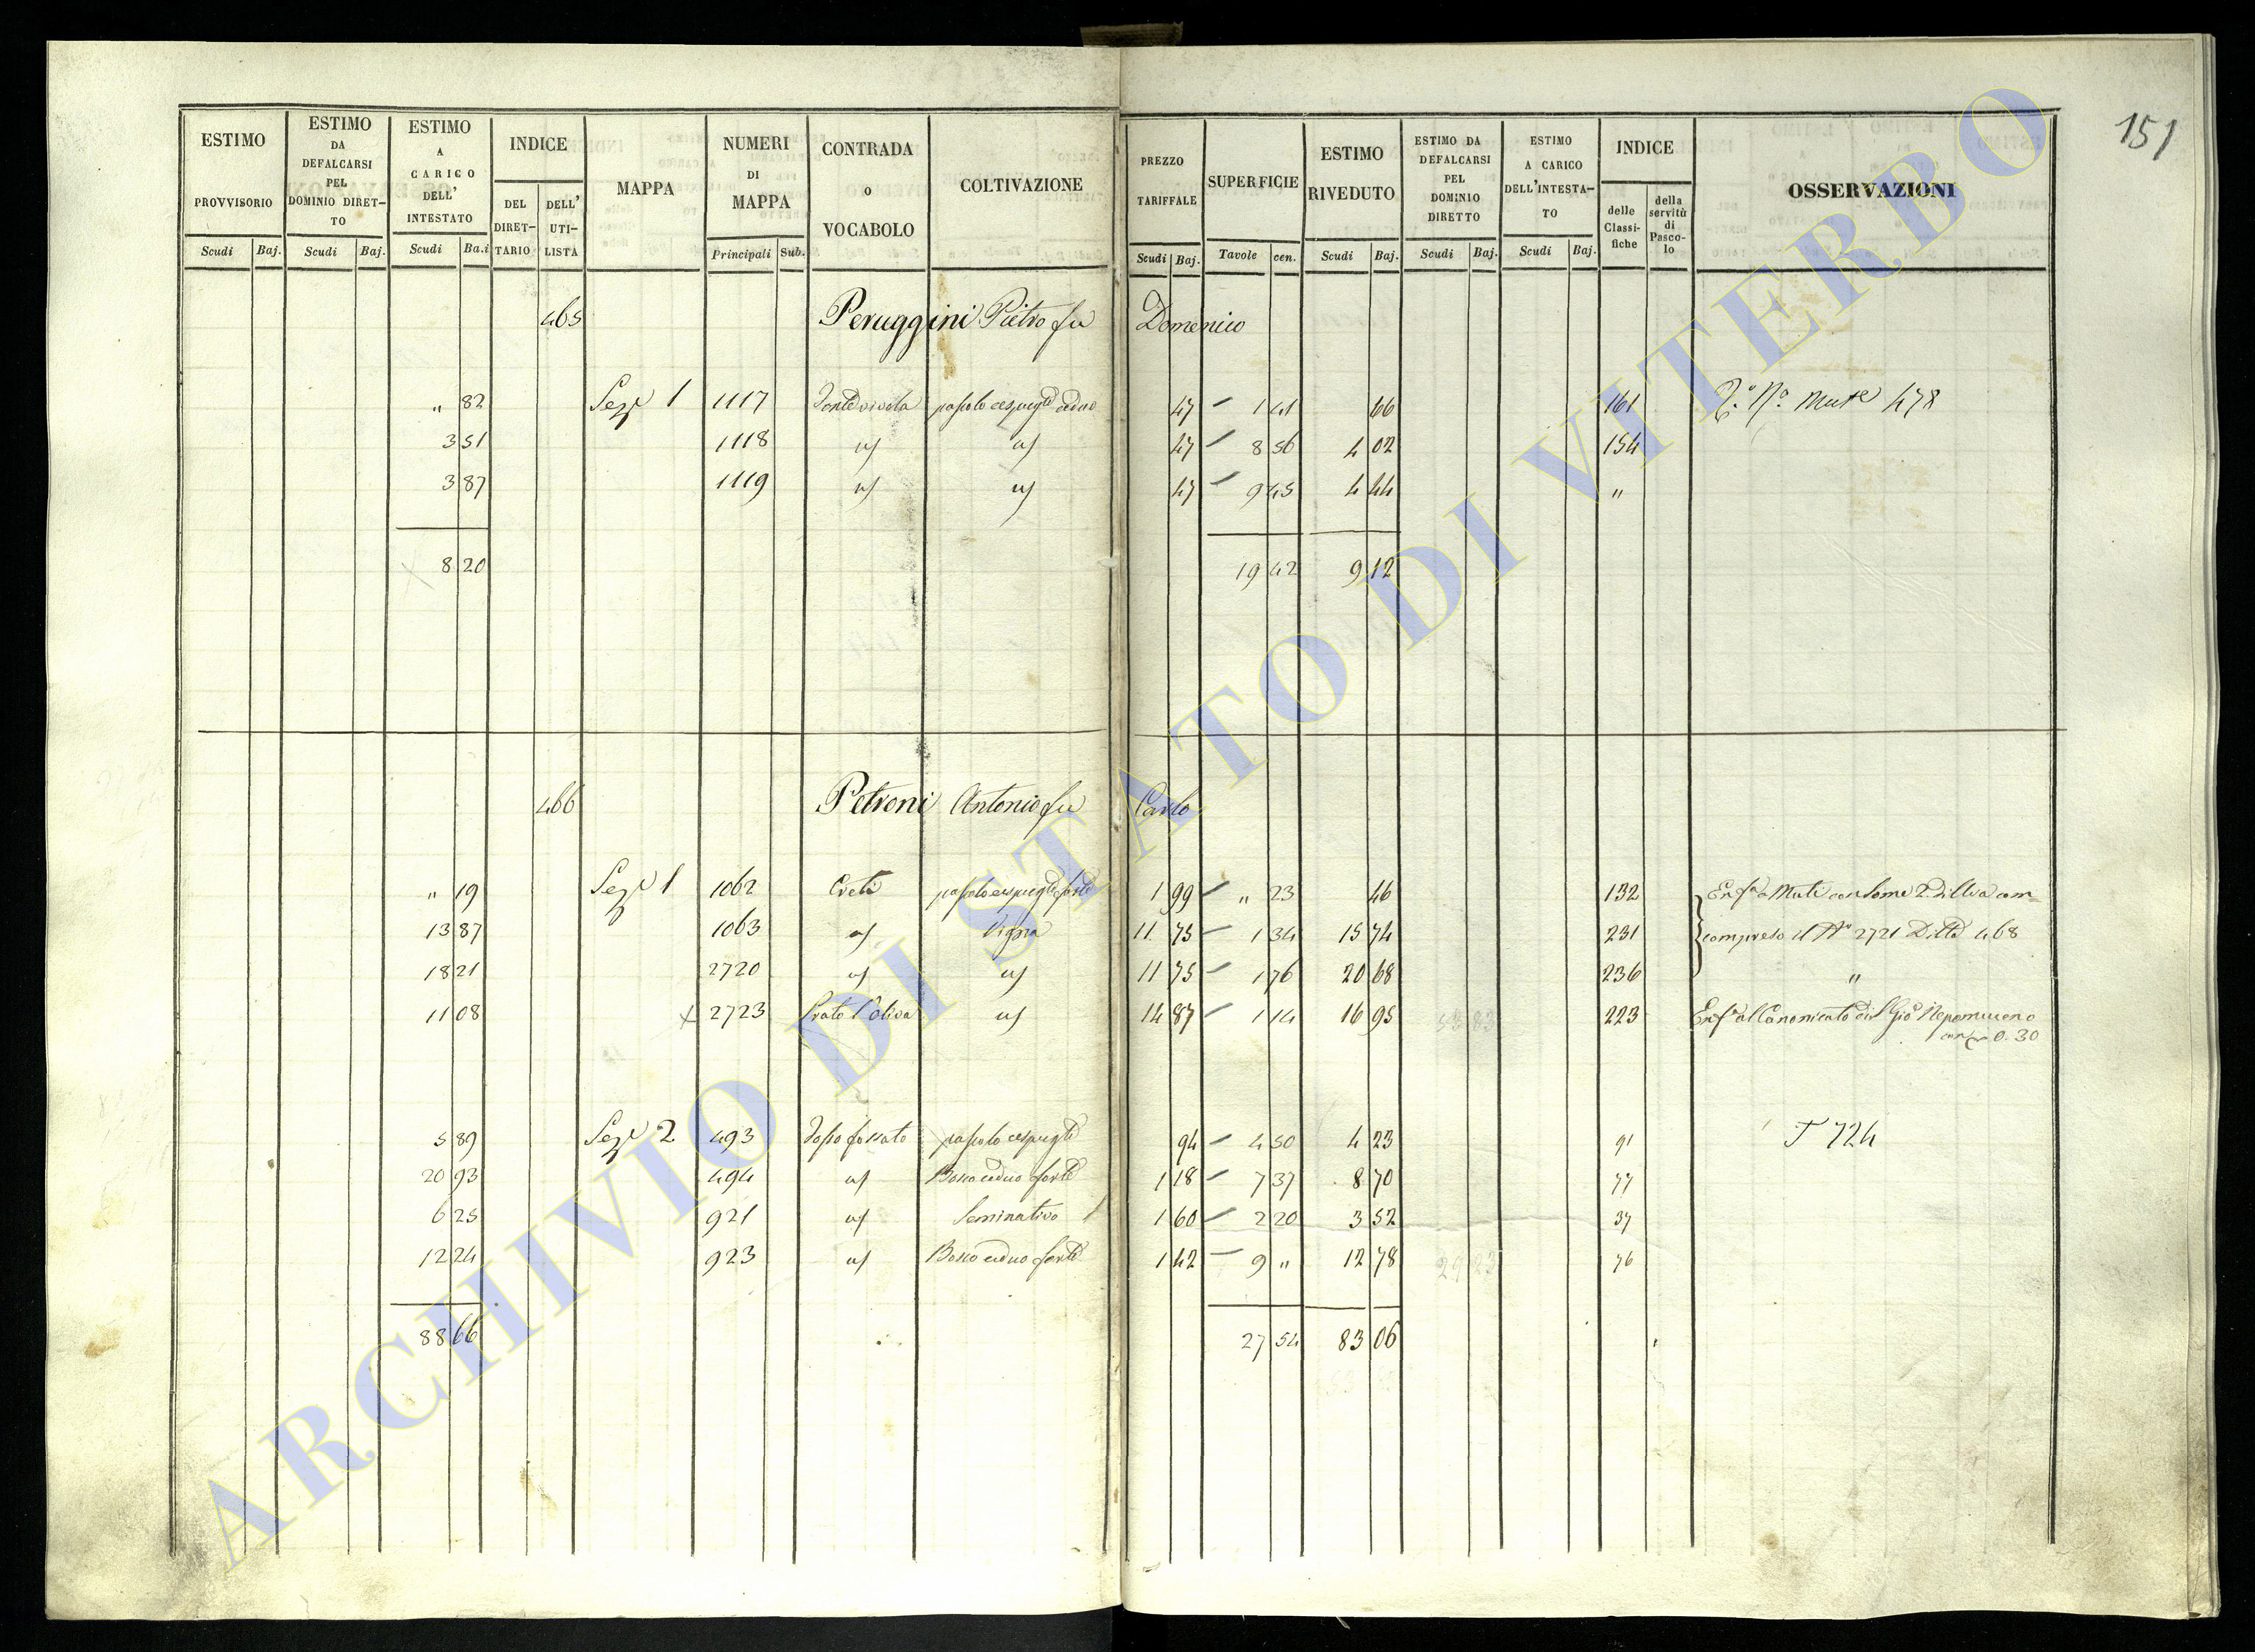 151
ESTIMO PROVVISORIO
ESTIMO DA DEFALCARSI PEL DOMINIO DIRET-TO
ESTIMO A CARICO DELL' INTESTATO
INDICE
DEL DIRET-TARIO
DELL' UTI-LISTA
MAPPA
NUMERI DI MAPPA
CONTRADA O VOCABOLO
COLTIVAZIONE
PREZZO TARIFFALE
SUPERFICIE
ESTIMO RIVEDUTO
ESTIMO DA DEFALCARSI PEL DOMINIO DIRETTO
ESTIMO A CARICO DELL'INTESTA-TO
INDICE
delle Classi-fiche
della servitù di Pasco-lo
OSSERVAZIONI
Scudi Baj. Scudi Baj. Scudi Ba.i Principali Sub. Scudi Baj. Tavole cen. Scudi Baj. Scudi Baj. Scudi Baj.
465 Peruggini Pietro fu Domenico
" 82 Sez.e 1 1117 47 1 41 66 161 478
3 51 1118 47 8 56 4 02 154
3 87 1119 47 9 45 4 44 "
8 20 19 42 9 12
466 Petroni Antonio fu Carlo
" 19 Sez.e 1 1062 Creta 1 99 " 23 46 132
13 87 1063 Vigna 11 75 1 34 15 74 231 compreso il N° 2721 Ditta 468
18 21 2720 11 75 1 76 20 68 236 "
11 08 2723 Prato l'oliva 14 87 1 14 16 95 53 83 223 Enf.a al Canonicato di S. Gio. Nepomuceno
0.30
5 89 Sez.e 2 493 94 4 50 4 23 91 T 724
20 93 494 Bosco ceduo forte 1 18 7 37 8 70 77
6 25 921 Seminativo 1 60 2 20 3 52 37
12 24 923 Bosco ceduo forte 1 42 9 " 12 78 29 23 76
88 66 27 54 83 06
ARCHIVIO DI STATO DI VITERBO